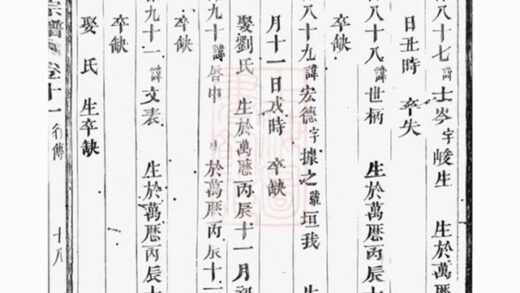 八十七諱士岑字峻生 生於萬厯
日丑時 卒失
八十八諱世柄 生於萬厯丙辰十
卒缺
八十九諱宏德字據之號垣我 生
月十一日戌時 卒缺
娶劉氏 生於萬厯丙辰十一月
九十諱啓中 生於萬厯丙辰十一
卒缺
九十一諱文表 生於萬厯丙辰十
卒缺
娶 氏 生卒缺
宗譜 卷十一 行傳 十八